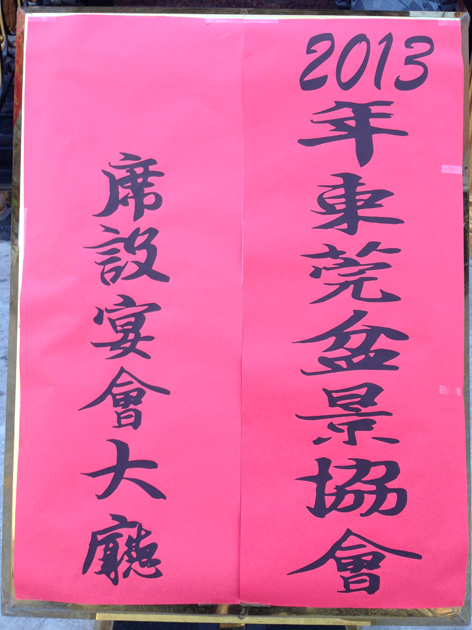 2013年東莞盆景協會
席設宴會大廳